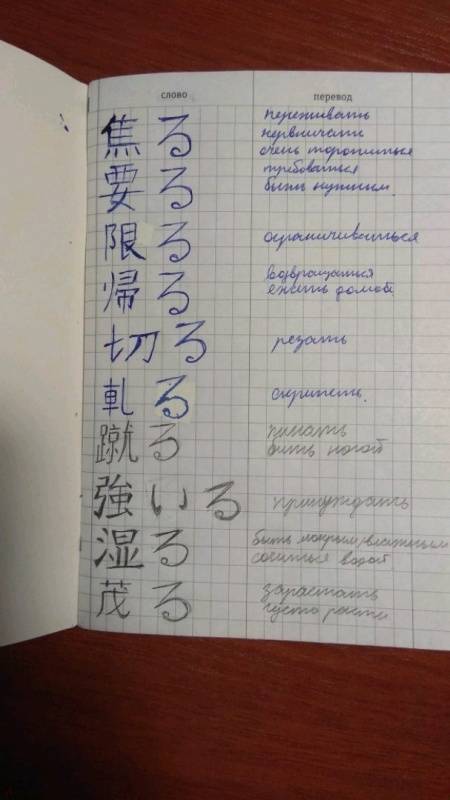 слово перевод
焦る переживать
нервничать
очень торопиться
要る требоваться
быть нужным.
限る ограничиваться
帰る возвращаться
ехать домой
切る резать
軋る скрипеть.
蹴る пинать
бить ногой
強いる принуждать
湿る быть мокрым/влажным
сочиться водой
茂る зарастать
густо расти